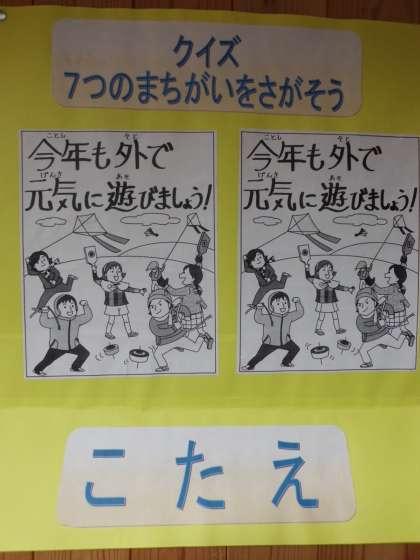 クイズ
7つのまちがいをさがそう
ことし そと
今年も外で
げんき あそ
元気に遊びましょう!
ことし そと
今年も外で
げんき あそ
元気に遊びましょう!
こたえ